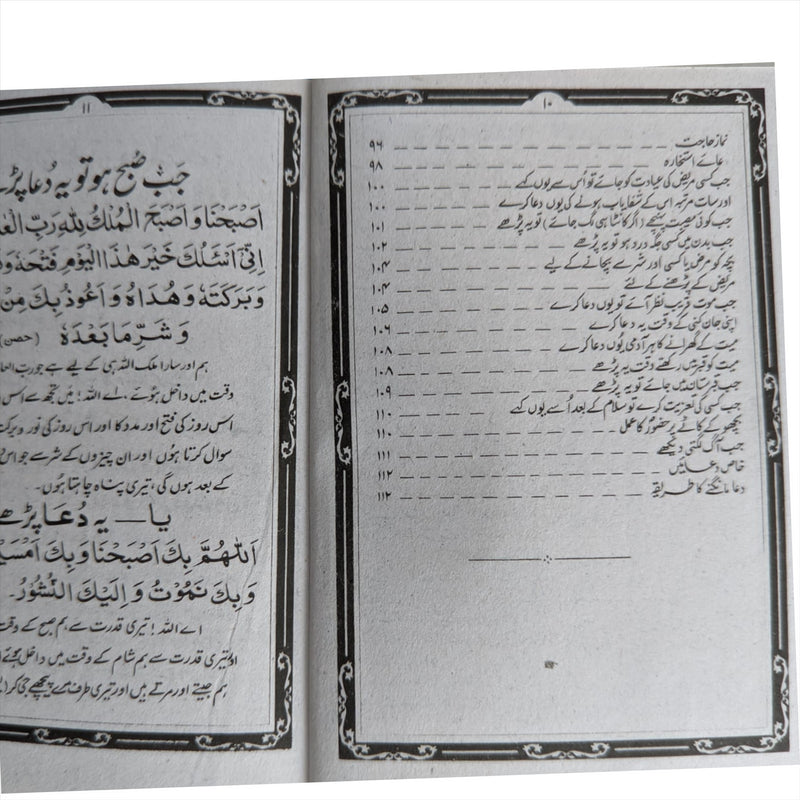 ۱۰
نماز حاجت ۹۶
عائے استخارہ ۹۸
جب کسی مریض کی عیادت کو جائے تو اُس سے یوں کہے ۱۰۰
اور سات مرتبہ اس کے شفایاب ہونے کی یوں دعا کرے ۱۰۰
جب کوئی مصیبت پہنچے (اگر کانٹا ہی لگ جائے) تو یہ پڑھے ۱۰۱
جب بدن میں کسی جگہ درد ہو تو یہ پڑھے ۱۰۲
بچہ کو مرض یا کسی اور شر سے بچانے کے لیے ۱۰۴
مریض کے پڑھنے کے لئے ۱۰۴
جب موت قریب نظر آئے تو یوں دعا کرے ۱۰۵
اپنی جان کنی کے وقت یہ دعا کرے ۱۰۶
میت کے گھرانے کا ہر آدمی یوں دعا کرے ۱۰۸
میت کو قبر میں رکھتے وقت یہ پڑھے ۱۰۸
جب قبرستان میں جائے تو یہ پڑھے ۱۰۹
جب کسی کی تعزیت کرے تو سلام کے بعد اُسے یوں کہے ۱۱۰
بچھو کے کاٹے پر حضورؐ کا عمل ۱۱۰
جب آگ لگتی دیکھے ۱۱۱
خاص دعائیں ۱۱۲
دعا مانگنے کا طریقہ ۱۱۲
۱۱
جب صبح ہو تو یہ دُعا پڑھے
اَصْبَحْنَا وَاَصْبَحَ الْمُلْكُ لِلّٰهِ رَبِّ
اِنِّیْٓ اَسْئَلُكَ خَیْرَ هٰذَا الْیَوْمِ فَتْحَهٗ
وَبَرَكَتَهٗ وَهُدَاهُ وَاَعُوْذُ بِكَ مِنْ
وَشَرِّ مَا بَعْدَهٗ (حصن)
ہم اور سارا ملک اللہ ہی کے لیے ہے جو رب
وقت میں داخل ہوئے۔ اے اللہ! میں تجھ سے اس
اس روز کی فتح اور مدد کا اور اس روز کی نور و برکت
سوال کرتا ہوں اور ان چیزوں کے شر سے جو اس
کے بعد ہوں گی، تیری پناہ چاہتا ہوں۔
یا — یہ دُعا پڑھے
اَللّٰهُمَّ بِكَ اَصْبَحْنَا وَبِكَ
وَبِكَ نَمُوْتُ وَاِلَیْكَ النُّشُوْرُ۔
اے اللہ! تیری قدرت سے ہم صبح کے وقت
اور تیری قدرت سے ہم شام کے وقت میں داخل ہوئے
ہم جیتے اور مرتے ہیں اور تیری طرف مرے پیچھے جی کر